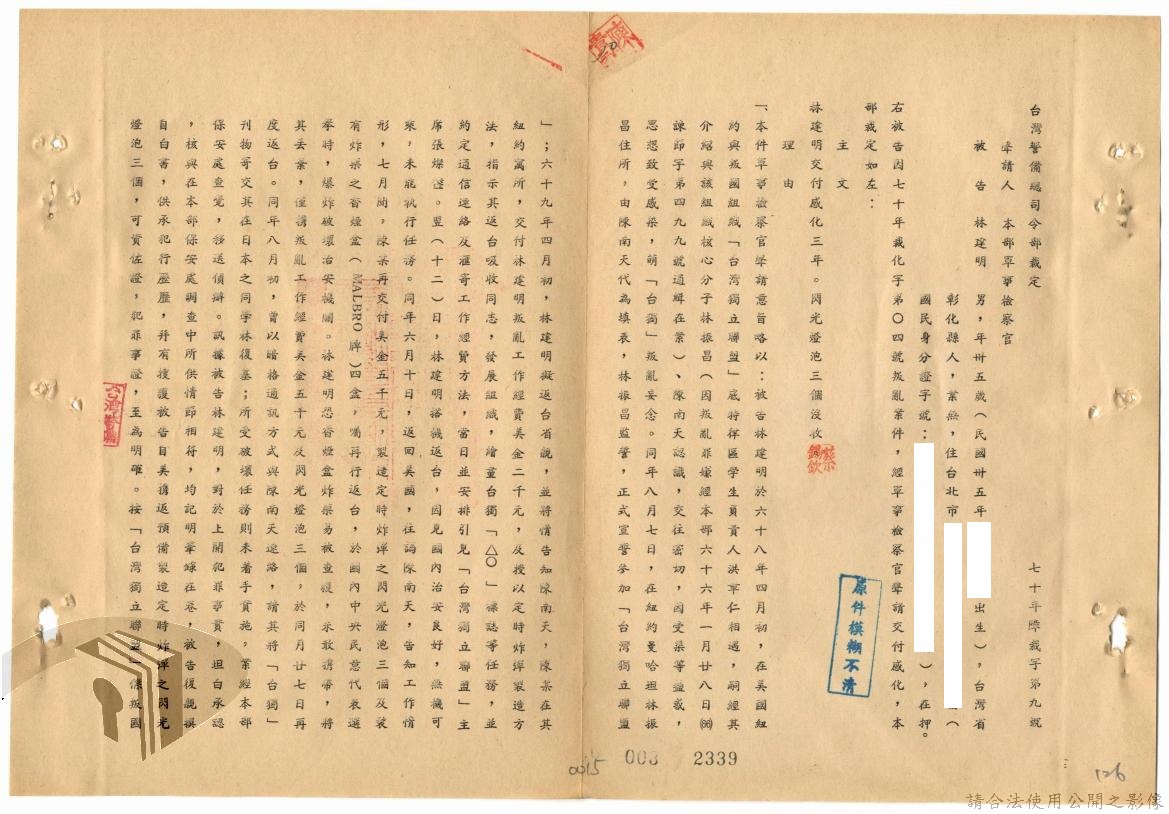 台灣警備總司令部裁定
七十年障裁字第九號
聲請人 本部軍事檢察官
被告 林建明 男,年卅五歲(民國卅五年
出生),台灣省
彰化縣人,業無,住台北市
(
國民身分證字號:
),在押。
右被告因七十年裁化字第〇四號叛亂案件,經軍事檢察官聲請交付感化,本
部裁定如左:
主文
林建明交付感化三年。閃光燈泡三個沒收
理由
一、本件軍事檢察官聲請意旨略以:被告林建明於六十八年四月初,在美國紐
約與叛國組織「台灣獨立聯盟」底特律區學生負責人洪軍仁相遇,嗣經其
介紹與該組織核心分子林振昌(因叛亂罪嫌經本部六十六年一月廿八日(66)
諫節字第四九九號通緝在案)、陳南天認識,交往密切,因受渠等蠱惑,
思想致受感染,萌「台獨」叛亂妄念。同年八月七日,在紐約曼哈坦林振
昌住所,由陳南天代為填表,林振昌監誓,正式宣誓參加「台灣獨立聯盟
」;六十九年四月初,林建明擬返台省親,並將情告知陳南天,陳某在其
紐約寓所,交付林建明叛亂工作經費美金二千元,及授以定時炸彈製造方
法,指示其返台吸收同志,發展組織,繪畫台獨「△〇」標誌等任務,並
約定通信連絡及滙寄工作經費方法,當日並安排引見「台灣獨立聯盟」主
席張燦鍙。翌(十二)日,林建明搭機返台,因見國內治安良好,無機可
乘,未能執行任務。同年六月十日,返回美國,往謁陳南天,告知工作情
形,七月間,陳某再交付美金五千元,製造定時炸彈之閃光燈泡三個及裝
有炸藥之香煙盒(MALBRO牌)四盒,囑再行返台,於國內中央民意代表選
舉時,爆炸破壞治安機關。林建明恐香煙盒炸藥易被查獲,未敢攜帶,將
其丟棄,僅攜叛亂工作經費美金五千元及閃光燈泡三個,於同月廿七日再
度返台。同年八月初,曾以暗格通訊方式與陳南天連絡,請其將「台獨」
刊物寄交其在日本之同學林復基;所受破壞任務則未着手實施,案經本部
保安處查覺,移送偵辦。訊據被告林建明,對於上開犯罪事實,坦白承認
,核與在本部保安處調查中所供情節相符,均記明筆錄在卷,被告復親撰
自白書,供承犯行歷歷,并有搜獲被告自美攜返預備製造定時炸彈之閃光
燈泡三個,可資佐證,犯罪事證,至為明確。按「台灣獨立聯盟」係叛國
原件模糊不清
003 2339
0015
126
請合法使用公開之影像